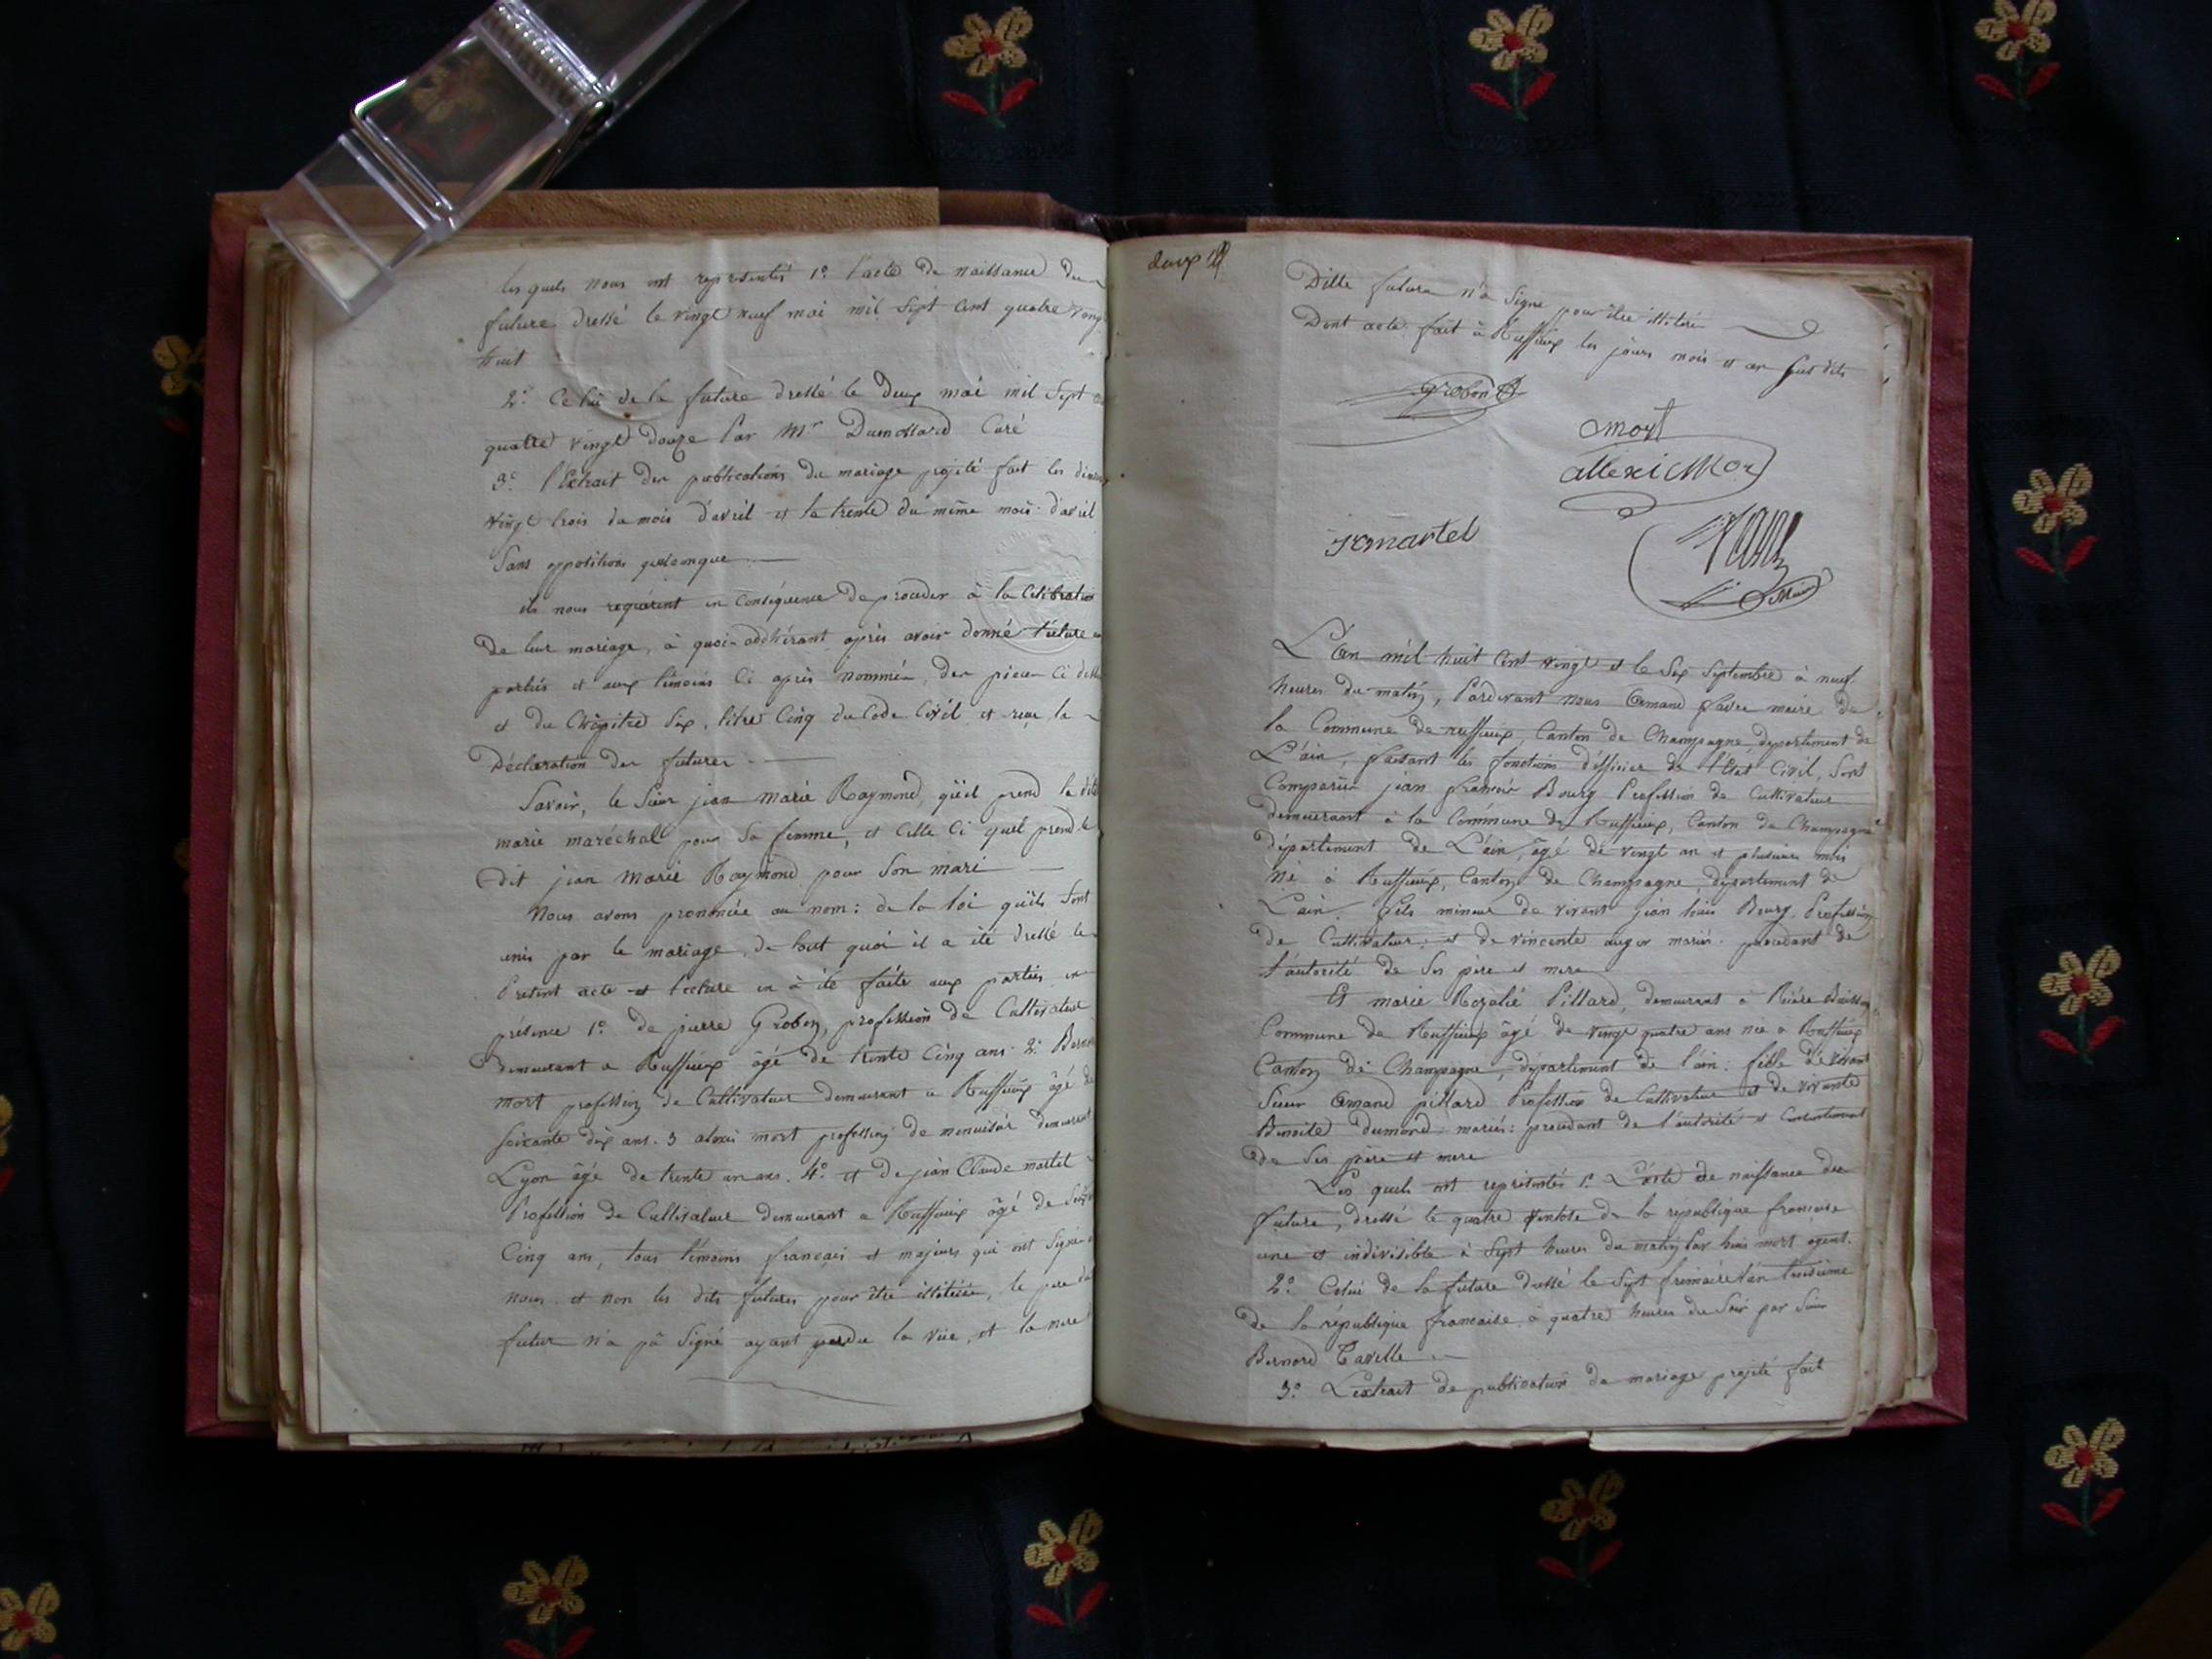 les quels nous ont représentés 1º l'acte de naissance du
future dressé le vingt neuf mai mil sept cent quatre vingt
huit
2º Celui de la future dressé le deux mai mil sept
quatre vingt douze Par Mr Dumollard Curé
3º l'Extrait des publications du mariage projeté fait les
vingt trois du mois d'avril et le trente du même mois d'avril
Sans opposition quelconque
ils nous requièrent en conséquence de procéder à la Célébration
de leur mariage, à quoi adhérant après avoir donné lecture
parties et aux témoins ci après nommés, des pièces ci
et du Chapitre Six, titre Cinq du Code Civil et reçu la
Déclaration des futures
Savoir, le Sieur jean marie Raymond, qu'il prend la dite
marie maréchal pour sa femme, et celle ci quel prend le
dit jean marie Raymond pour son mari
Nous avons prononcée au nom: de la loi qu'ils sont
unis par le mariage, de tout quoi il a été dressé le
Présent acte et lecture en à été faite aux parties en
présence 1º de pierre Grobon, profession de Cultivateur
demeurant a Ruffieux âgé de trente Cinq ans 2º
mort profession de Cultivateur demeurant a Ruffieux âgé de
soixante dix ans. 3 alexis mort profession de menuisier demeurant
Lyon âgé de trente un ans. 4º et de jean Claude martel
Profession de Cultivateur demeurant a Ruffieux âgé de
Cinq ans, tous témoins français et majeurs qui ont signé
nous et non les dits futures pour être illitérés, le père du
futur n'a pâ signé ayant perdu la vüe, et la mere
Ditte future n'a signé pour être illitéré
Dont acte fait à Ruffieux les jours mois et an susdits
Grobon
mort
allexi Mor
jc martel
L'an mil huit cent vingt et le six septembre à neuf
heures du matin, Pardevant nous Emand favre maire de
la Commune de ruffieux, Canton de Champagne, département de
L'ain, faisant les fonctions d'officier de l'état Civil, sont
Comparus jean françois Bourg Profession de Cultivateur
demeurant à la Commune de Ruffieux, Canton de Champagne
département de L'ain, âgé de vingt an et plusieurs mois
Né à Ruffieux, Canton de Champagne, département de
L'ain, fils mineur de vivant jean louis Bourg, Profession
de Cultivateur: et de vincente auger mariés. procedant de
l'autorité de ses père et mere
Et marie Rozalié Pillard, demeurant à
Commune de Ruffieux âgé de vingt quatre ans née à Ruffieux
Canton de Champagne, département de l'ain: fille de vivant
Sieur Emand pillard Profession de Cultivateur et de vivante
Benoite dumond: mariés: procedant de l'autorité et Consentement
de ses père et mere
Les quels ont représentés 1º L'acte de naissance du
future, dressé le quatre ventose de la republique francaise
une et indivisible à Sept heures du matin Par mort agent.
2º Celui de la future dressé le Sept frimaire l'an troisième
de la république francaise, à quatre heures du Soir par
Bernard
3º L'extrait de publication du mariage projeté fait